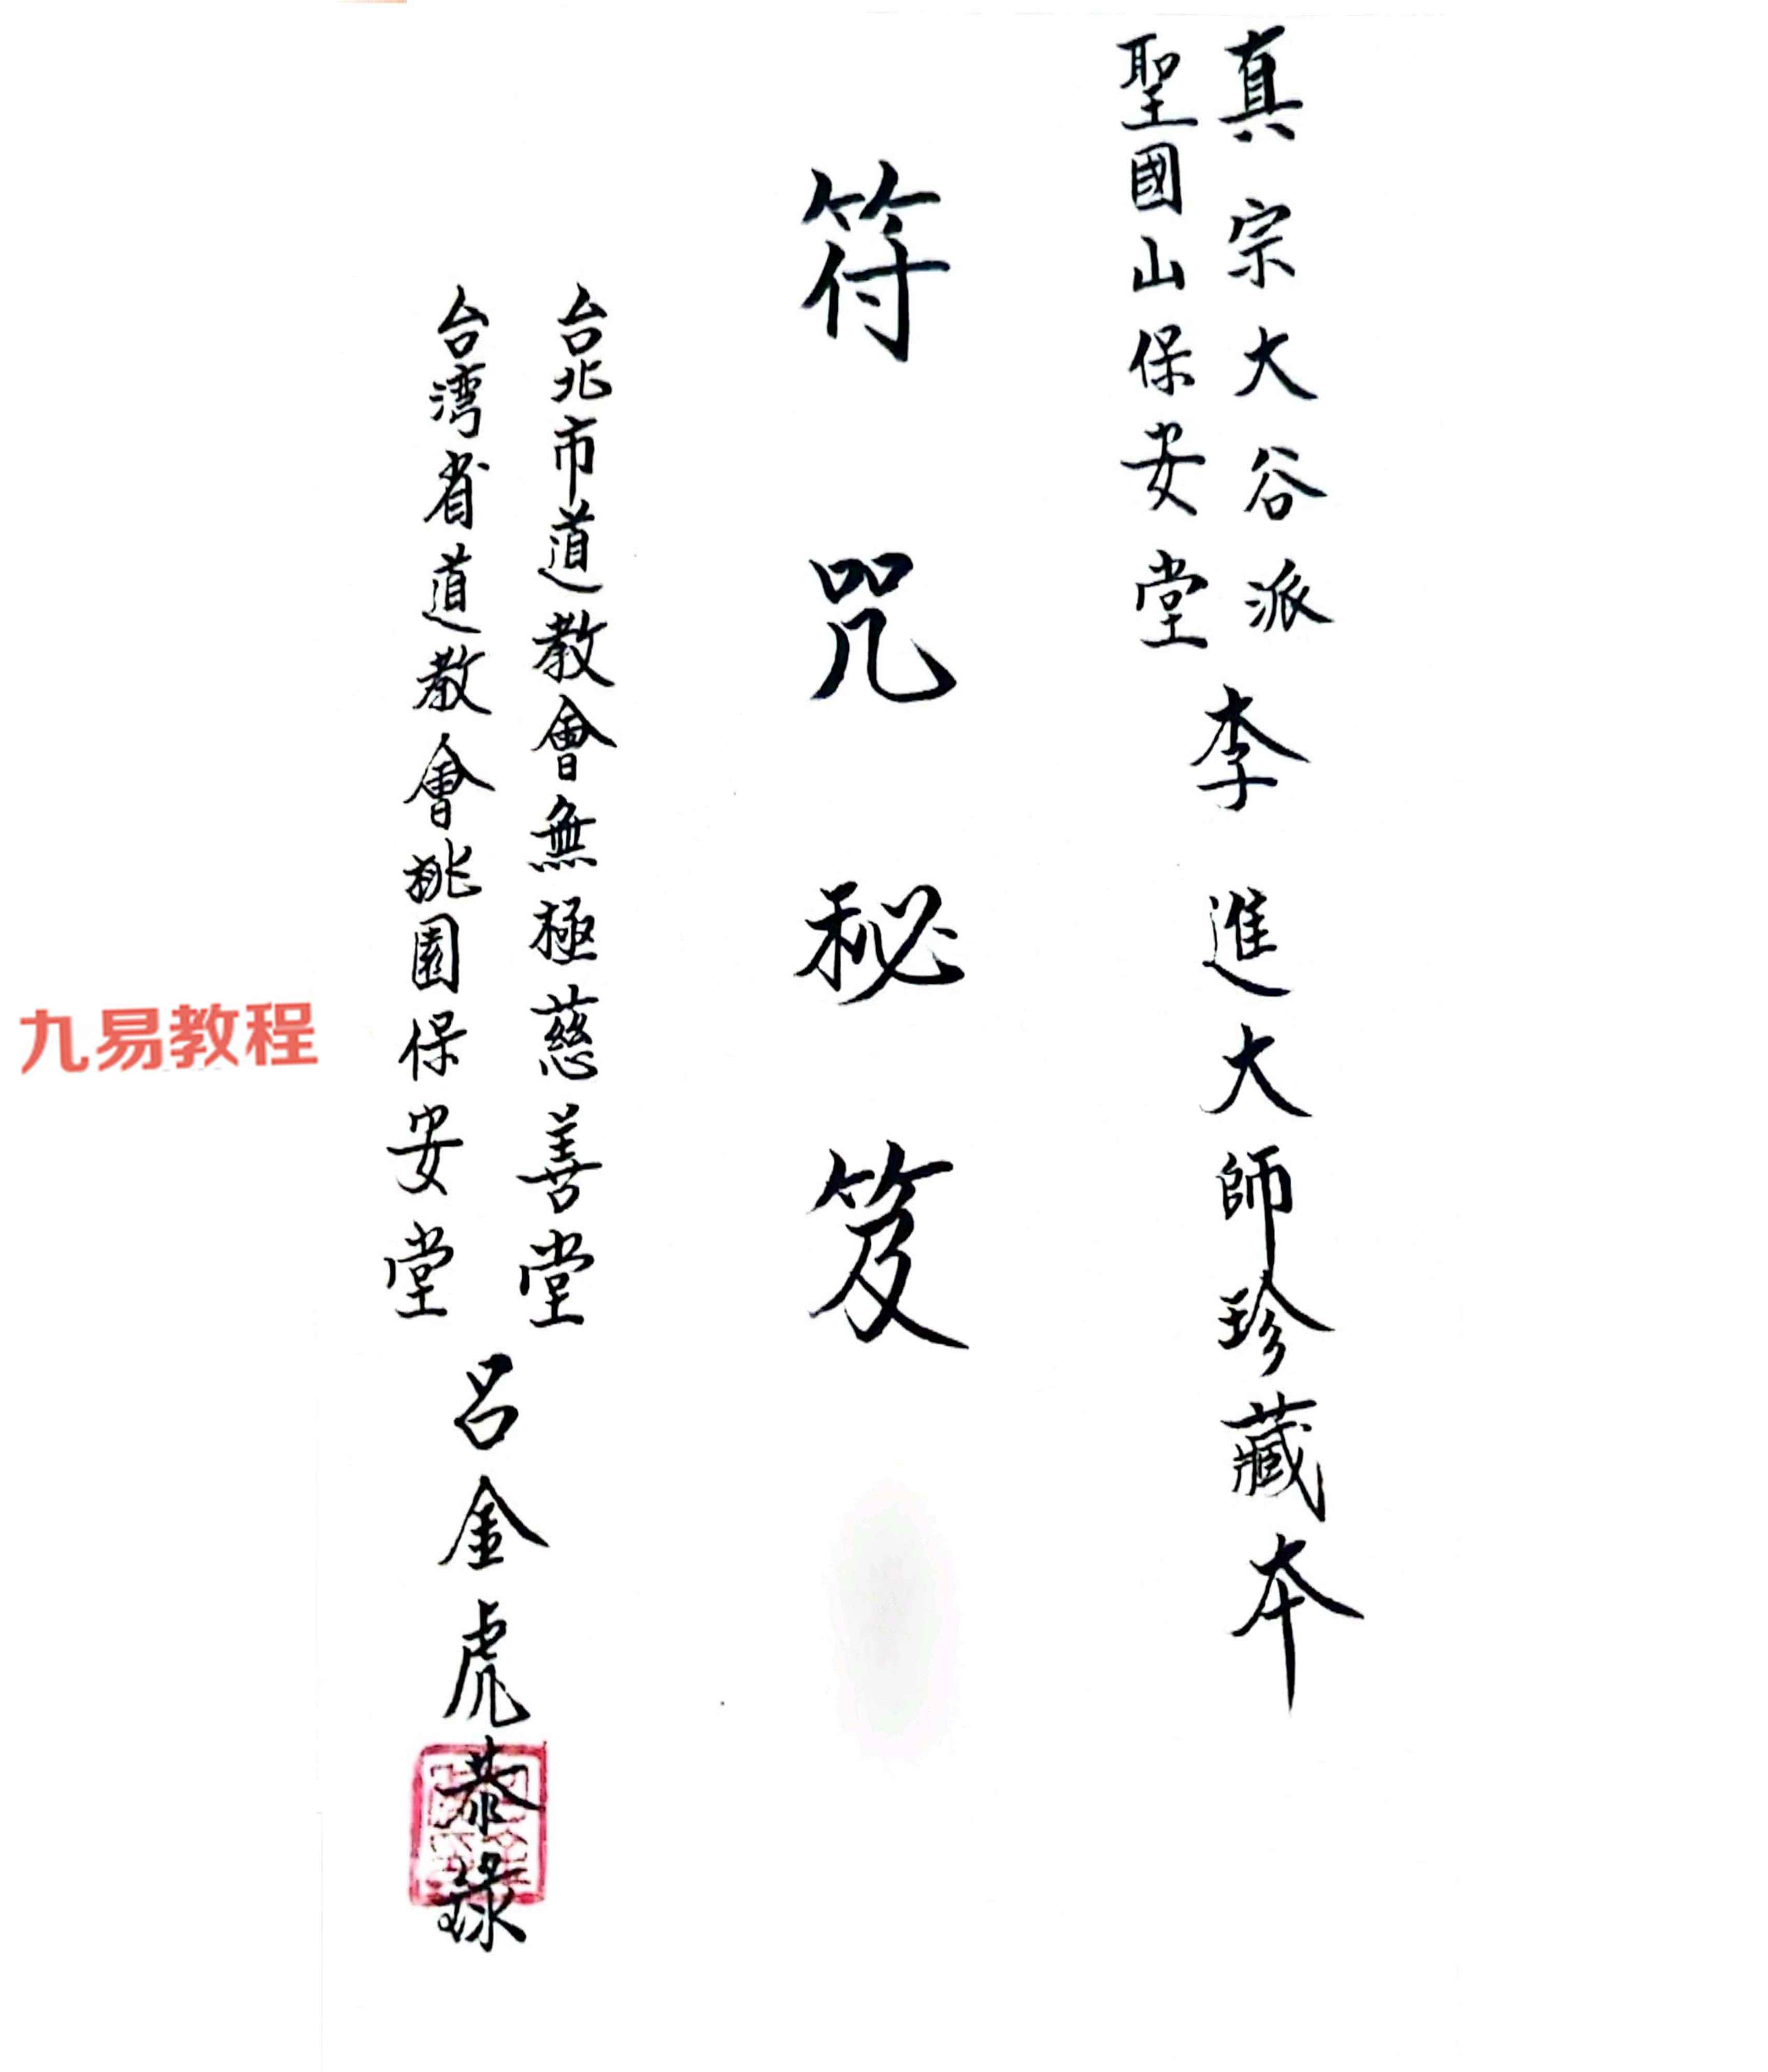 真宗大谷派
聖國山保安堂
李進大師珍藏本
符咒秘笈
台北市道教會無極慈善堂
台湾省道教會桃園保安堂
呂金虎恭録
九易教程